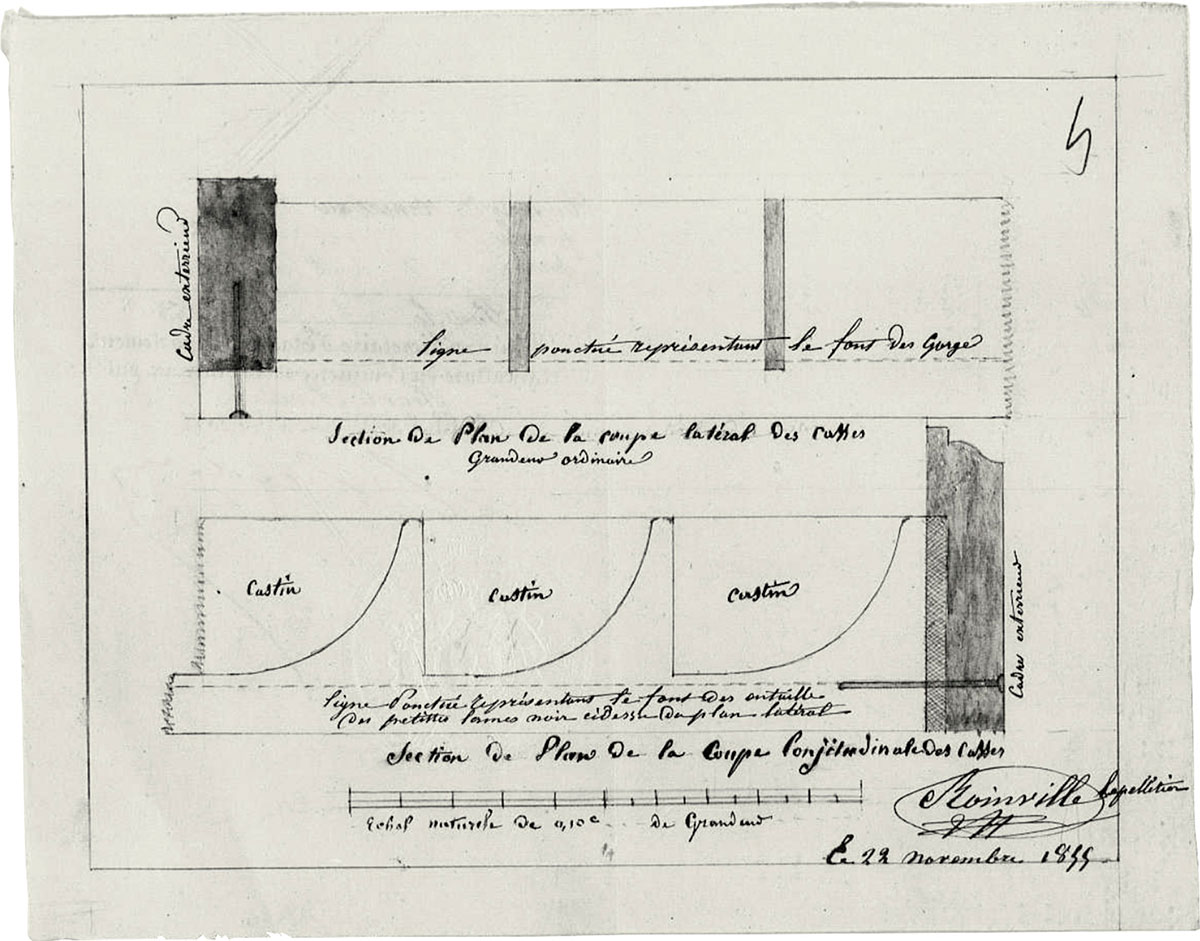 5
Cadre exterrieur
ligne ponctué représentant le font des Gorge
Section de Plan de la coupe latéral des Casses
Grandeur ordinaire
Castin
Castin
Castin
Cadre exterrieur
ligne Ponctué représentant le font des entaille
des petittes lames noir cidesse du plan latéral
Section de Plan de la Coupe longitudinale des Casses
Echel naturele de 0,10c de Grandeur
Roinville Lepelletier
Le 22 novembre 1855